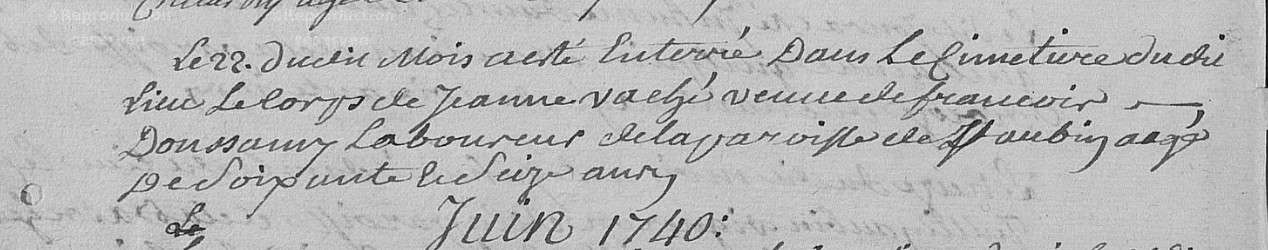 Le 22. dudit Mois a esté Enterré Dans Le Cimetiere du dit
Lieu Le Corps de Jeanne vaché veuve de francois
Doussamy Laboureur de la paroisse de St aubin aagé
De Soixante le Seize ans
Le
Juin 1740: